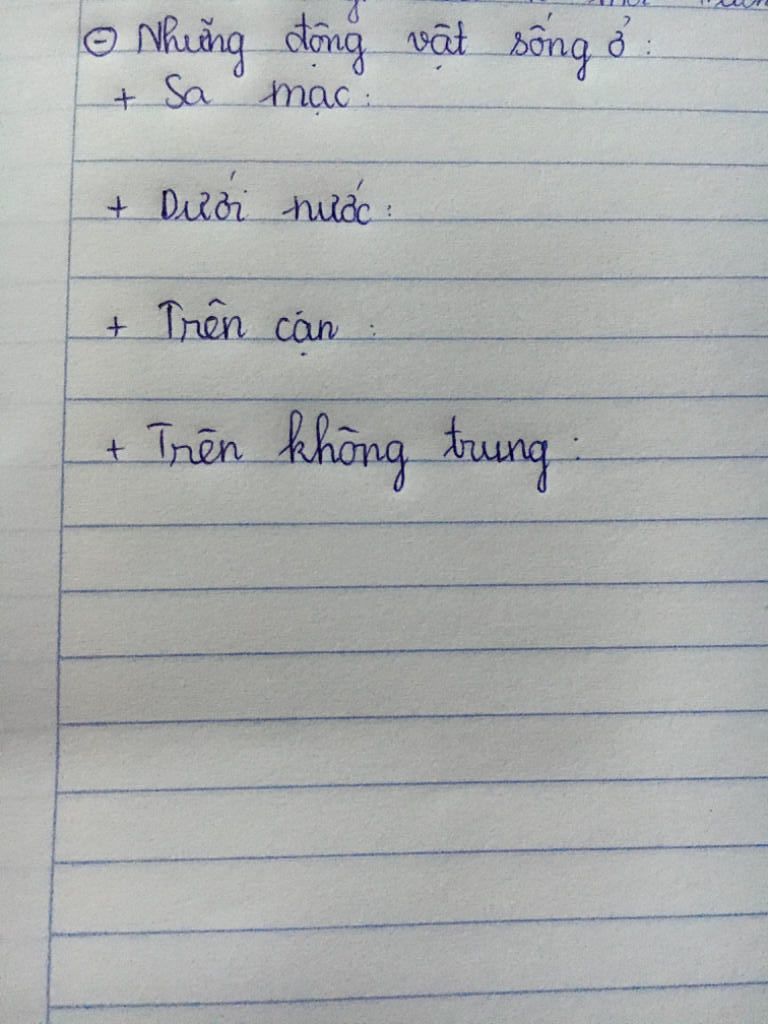 ⊖ Những động vật sống ở :
+ Sa mạc :
+ Dưới nước :
+ Trên cạn :
+ Trên không trung :